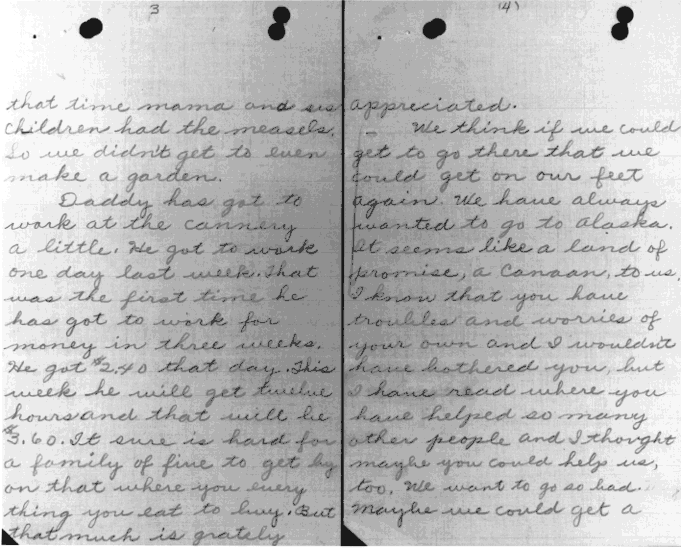 3
that time mama and six
children had the measels.
So we didn't get to even
make a garden.
Daddy has got to
work at the cannery
a little. He got to work
one day last week. That
was the first time he
has got to work for
money in three weeks.
He got $2.40 that day. This
week he will get twelve
hours and that will be
$3.60. It sure is hard for
a family of five to get by
on that where you every
thing you eat to buy. But
that much is grately
(4)
appreciated.
We think if we could
get to go there that we
could get on our feet
again. We have always
wanted to go to Alaska.
It seems like a land of
promise, a Canaan, to us.
I know that you have
troubles and worries of
your own and I wouldn't
have bothered you, but
I have read where you
have helped so many
other people and I thought
maybe you could help us,
too. We want to go so bad.
Maybe we could get a